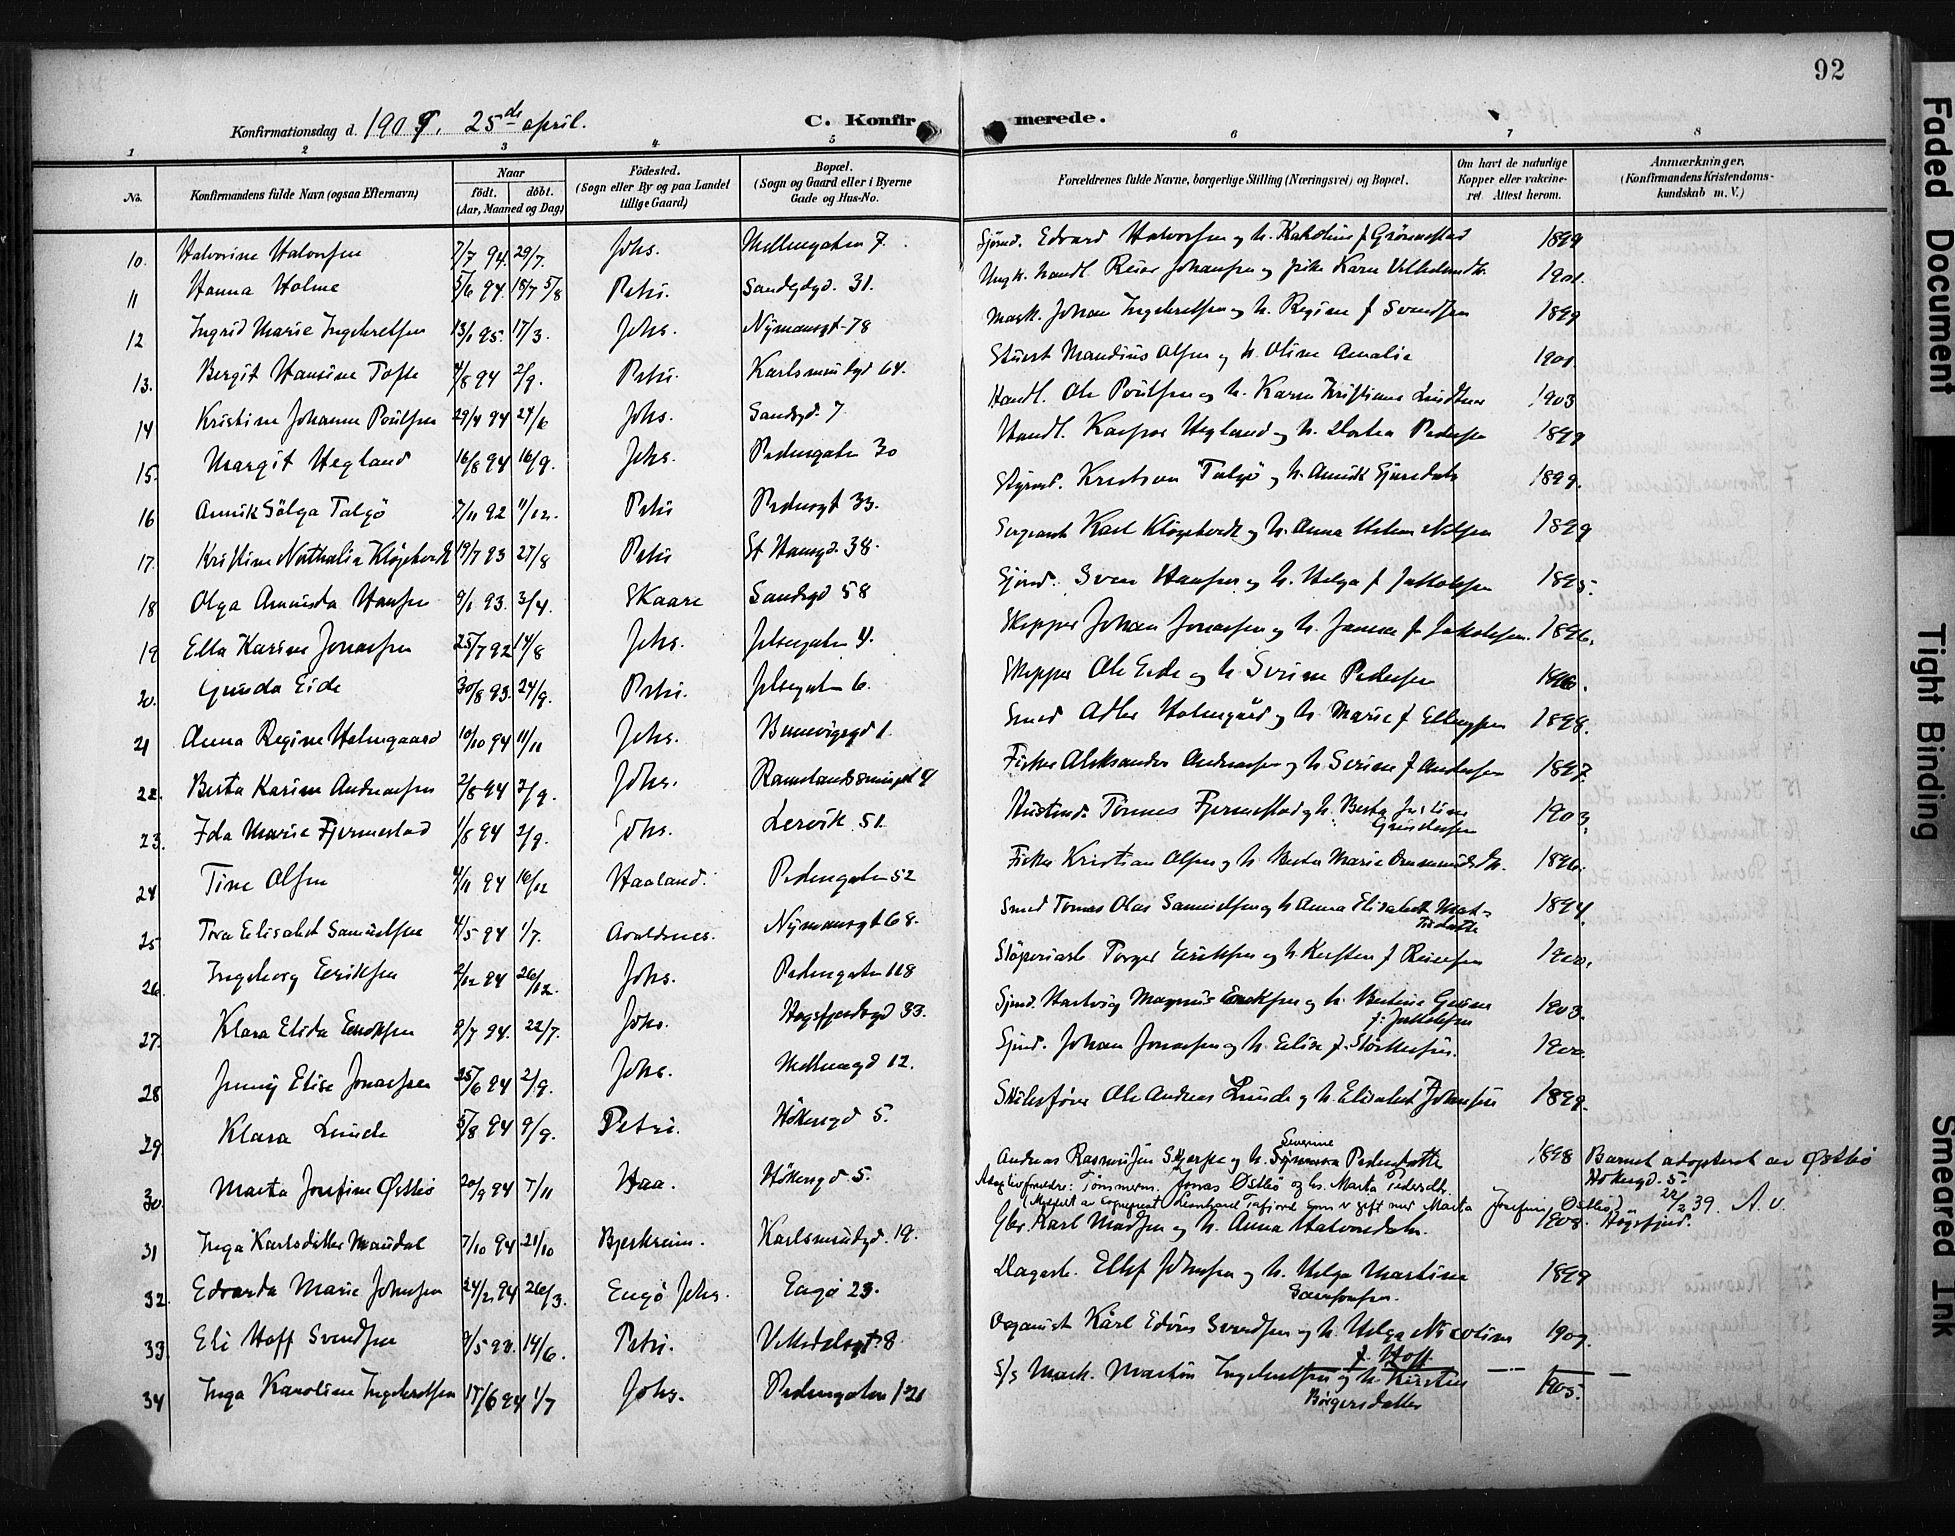 92
Konfirmationsdag d. 1909. 25de april.
C. Konfirmerede.
1 2 3 4 5 6 7 8
No.
Konfirmandens fulde Navn (ogsaa Efternavn)
Naar
født. døbt.
(Aar, Maaned og Dag)
Födested.
(Sogn eller By og paa Landet
tillige Gaard)
Bopæl.
(Sogn og Gaard eller i Byerne
Gade og Hus-No.
Forældrenes fulde Navne, borgerlige Stilling (Næringsvei) og Bopæl.
Om havt de naturlige
Kopper eller vakcine-
ret. Attest herom.
Anmærkninger.
(Konfirmandens Kristendoms-
kundskab m. V.)
10. Halvorine Halvorsen 7/7 94. 29/7. Johs. Mellemgaten 7. Sjömd. Edvard Halvorsen og h. Karoline f Grönnestad 1899
11 Hanna Holme 5/6 94. 18/7 5/8 Petri. Sandsgd. 31. Ungk. handl. Reier Johansen og pike Karen 1901.
12 Ingrid Marie Ingebretsen 13/1 95. 17/3. Johs. Nymansgt 78 Mask. Johan Ingebretsen og h. Regine f Svendsen 1899
13. Bergit Hansine Tofte 4/8 94 2/9. Petri. Karlsminnegd 64. Stuert Mandius Olsen og h. Oline Amalie 1901.
14 Kristine Johanne Poulsen 29/4 94 24/6 Johs. Sandsgd. 7 Handl. Ole Poulsen og h. Karen Kristiane 1903
15. Margit Hegland 16/8 94 16/9. Johs. Pedersgaten 30 Handl. Kaspar Hegland og h. Dortea Pedersen 1899
16 Annik Sölga Talgö 7/11 92 11/12. Petri Pedersgt 33. Styrmd. Kristian Talgö og h. Annik 1899.
17. Kristine Nathalie 19/7 93 27/8 Petri St Hansgd. 38. Sergeant Karl og h. Anna Helene Nilsen 1899
18 Olga Amanda Hansen 9/1 93. 3/4. Skaare Sandsgd 58 Sjömd. Sven Hansen og h. Helga f Jakobsen 1895.
19 Ella Karine Jonassen 25/7 92 14/8 Johs. Jelsegaten 4. Skipper Johan Jonassen og h. Janna f Jakobsen. 1896.
20. Gunda Eide 30/8 93. 24/9. Petri. Jelsegaten 6. Skipper Ole Eide og h Serine Pedersen
21 Anna Regine Holmgaard 10/10 94 11/11 Johs. Banevigsgd 1. Smed Adler Holmgård og h. Marie f. Ellingsen 1898.
22. Berta Karine Andreassen 2/8 94 2/9. Johs. Fisker Aleksander Andreassen og h Serine f Andersen 1897.
23. Ida Marie Fjermestad 1/8 94 2/9. Johs. Lervik 51. Hustmd. Tönnes Fjermestad og h. Berta Justine 1903.
Gundersen
24 Tine Olsen 4/11 94 16/12 Haaland. Pedersgaten 52 Fisker Kristian Olsen og h Berta Marie 1896.
25 Tora Elisabet Samuelsen 4/5 94 1/7. Avaldsnes. Nymansgt 68. Smed Tomas Olai Samuelsen og h Anna Elisabeth 1894.
26. Ingeborg Eriksen 2/12 94 26/12. Johs. Pedersgaten 118 Stöperiarb. Torger Eriksen og h. Kirsten f 1900.
27. Klara Elida Eriksen 9/7 94. 22/7. Johs. Högsfjordsgd 33. Sjmd. Hartvig Magnus Eriksen og h. Bertine 1903.
f: Jakobsen
28 Jenny Elise Jonassen 25/6 94 2/9. Johs. Mellemgd 12. Sjmd. Johan Jonassen og h. Elise f. Störkersen. 1900.
29. Klara Lunde 5/8 94 9/9. Petri. Hökersgd 5. Ole Andreas Lunde og h. Elisabet Johansen 1899.
30. Marta Josefine Østbö 20/9 94 7/11 Haa. Hökersgd 5. Andreas Rasmussen Skarpe og h. Severine Pedersdatter 1898 Barnet adopteret av Østbö
Hökersgd. 5
Adoptivforældre: Tömmerm. Jonas Østbö og h. Marta Pedersdtr.
Leonhard Tafjord som er gift med Marta Josefine Østbö) 22/2 39. A. v.
31 Inga Karlsdatter Maudal 7/10 94 21/10 Bjerkreim. Karlsminnegd. 19. Gbr. Karl Madsen og h. Anna Halvorsdatter. 1908. Högsfjord.
32. Edvarda Marie Johnsen 24/2 94 26/3. Engö Johs. Engö 23. Dagarb. Ellef Johnsen og h. Helga Martine 1899
33. Eli Hoff Svendsen 9/5 93. 14/6. Petri. Organist Karl Edvin Svendsen og h. Helga Nicoline 1909.
f. Hoff
34 Inga Karoline Ingebretsen 17/6 94 1/7 Johs. Pedersgaten 121 S/S Mask. Martin Ingebretsen og h. Kirsten 1905.
Börgersdatter
Faded Document
Tight Binding
Smeared Ink